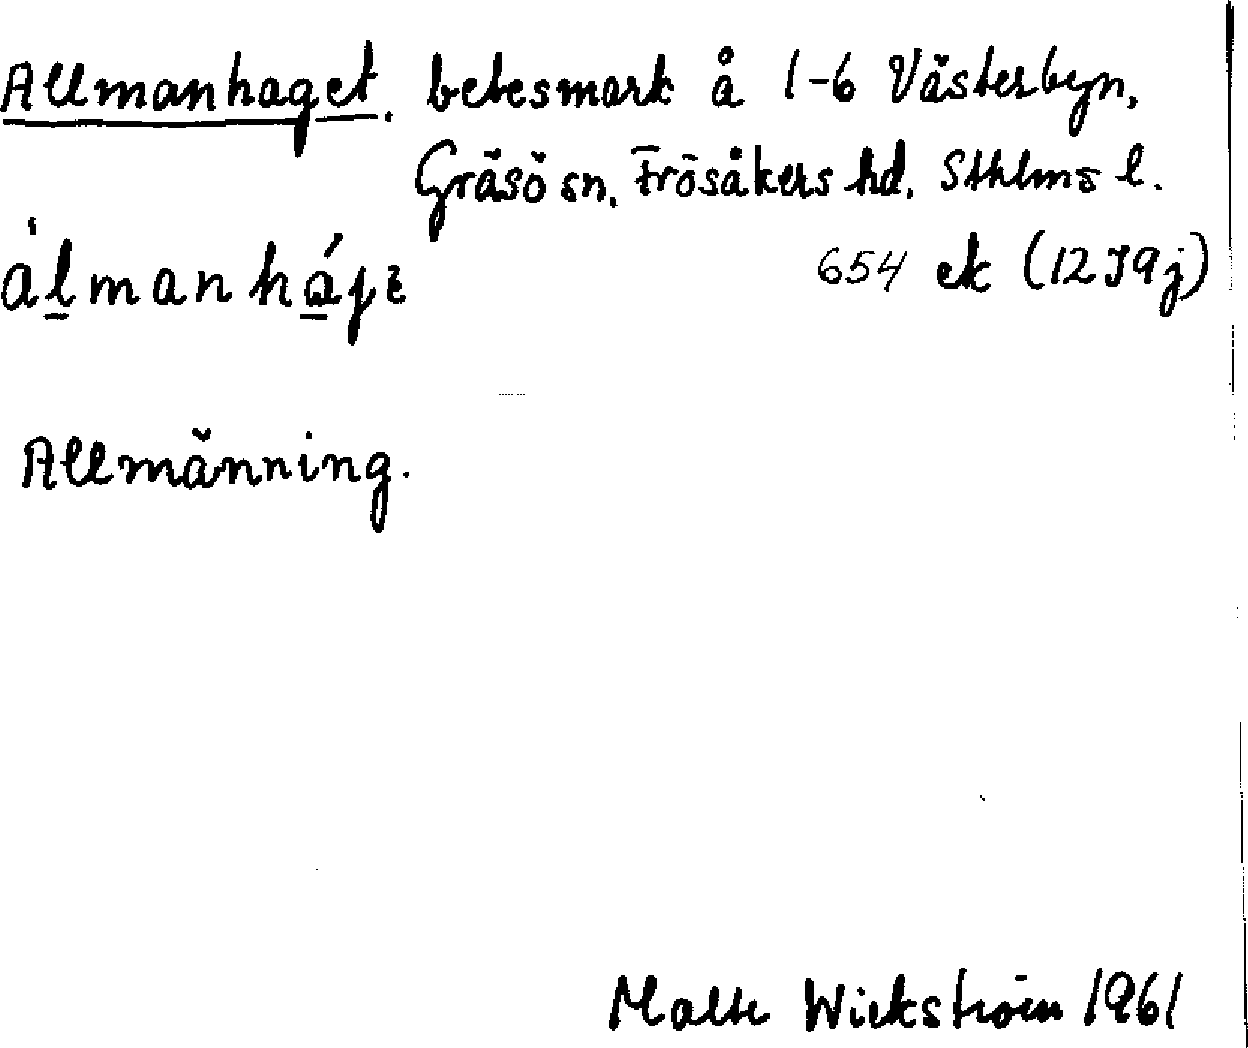 Allmanhaget. betesmark å 1-6 Västerbyn,
Gräsö sn, Frösåkers hd, Sthlms l.
654 ek (12I9j)
Allmänning.
Malte Wickström 1961